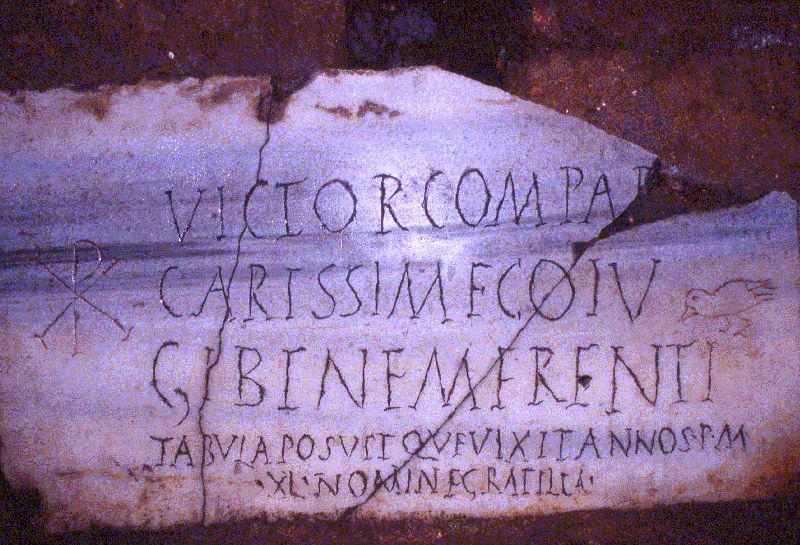 VICTOR COMPAR
CARISSIME COIV
GI BINEMERENTI
TABVLA POSVIT QVE VIXIT ANNOS P M
XL NOMINE GRATILLA